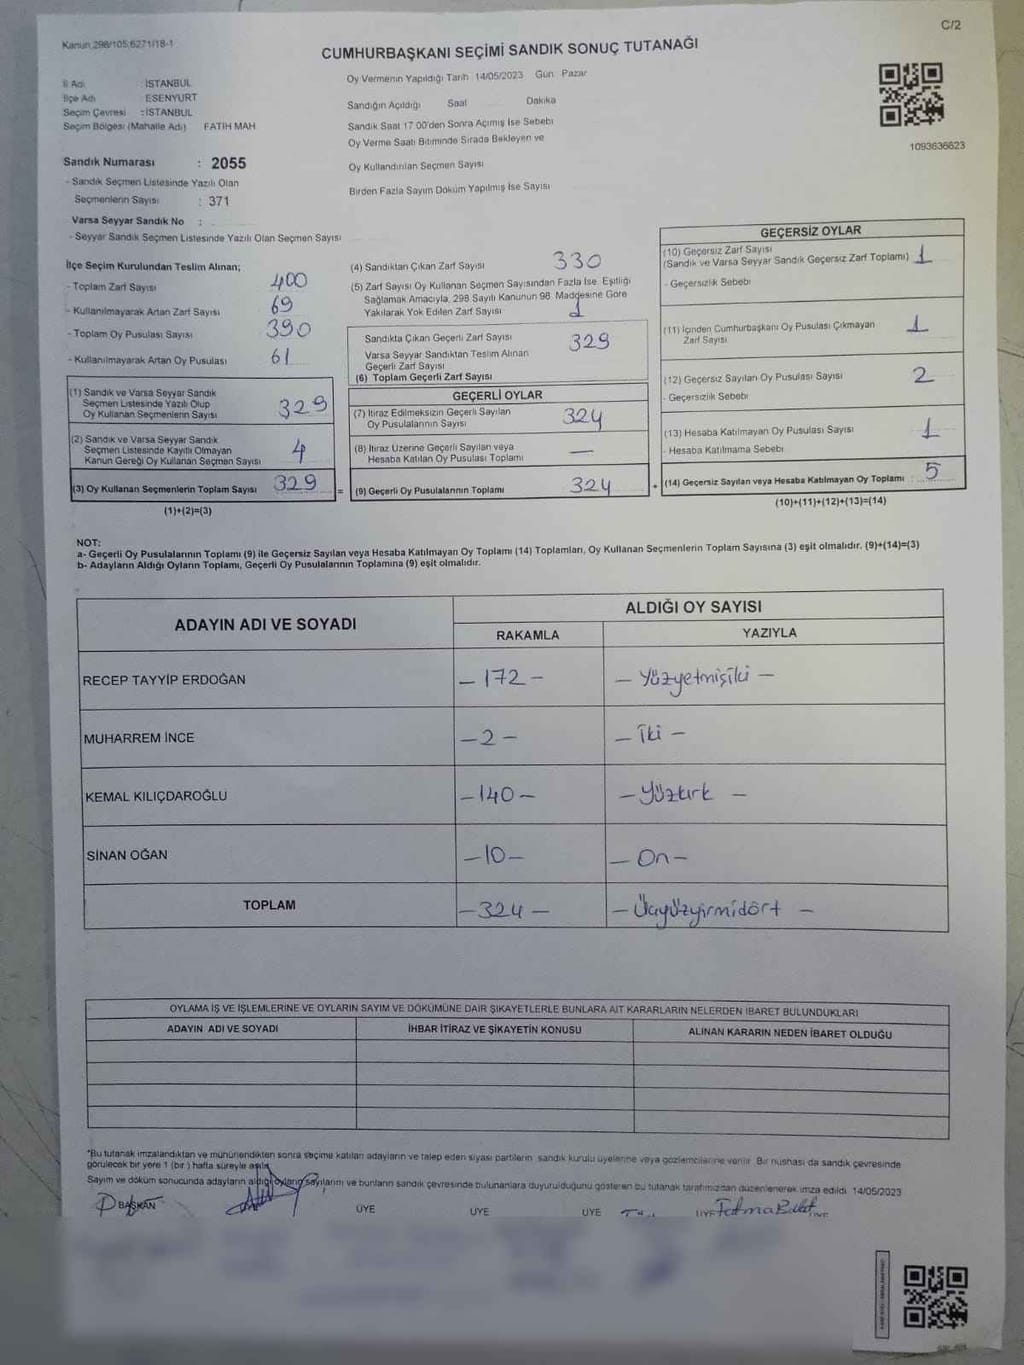 C/2
Kanun 298/105,6271/18-1
CUMHURBAŞKANI SEÇİMİ SANDIK SONUÇ TUTANAĞI
İl Adı : İSTANBUL
İlçe Adı : ESENYURT
Seçim Çevresi : İSTANBUL
Seçim Bölgesi (Mahalle Adı) FATİH MAH
Oy Vermenin Yapıldığı Tarih 14/05/2023 Gün Pazar
Sandığın Açıldığı Saat Dakika
Sandık Saat 17.00'den Sonra Açımış İse Sebebi
Oy Verme Saati Bitiminde Sırada Bekleyen ve
Oy Kullandırılan Seçmen Sayısı
Birden Fazla Sayım Döküm Yapılmış İse Sayısı
1093636623
Sandık Numarası : 2055
- Sandık Seçmen Listesinde Yazılı Olan
Seçmenlerin Sayısı : 371
Varsa Seyyar Sandık No :
- Seyyar Sandık Seçmen Listesinde Yazılı Olan Seçmen Sayısı
İlçe Seçim Kurulundan Teslim Alınan;
- Toplam Zarf Sayısı 400
- Kullanılmayarak Artan Zarf Sayısı 69
- Toplam Oy Pusulası Sayısı 390
- Kullanılmayarak Artan Oy Pusulası 61
(1) Sandık ve Varsa Seyyar Sandık
Seçmen Listesinde Yazılı Olup
Oy Kullanan Seçmenlerin Sayısı 329
(2) Sandık ve Varsa Seyyar Sandık
Seçmen Listesinde Kayıtlı Olmayan
Kanun Gereği Oy Kullanan Seçmen Sayısı 4
(3) Oy Kullanan Seçmenlerin Toplam Sayısı 329 =
(1)+(2)=(3)
(4) Sandıktan Çıkan Zarf Sayısı 330
(5) Zarf Sayısı Oy Kullanan Seçmen Sayısından Fazla İse, Eşitliği
Sağlamak Amacıyla, 298 Sayılı Kanunun 98. Maddesine Göre
Yakılarak Yok Edilen Zarf Sayısı 1
Sandıkta Çıkan Geçerli Zarf Sayısı 329
Varsa Seyyar Sandıktan Teslim Alınan
Geçerli Zarf Sayısı
(6) Toplam Geçerli Zarf Sayısı
GEÇERLİ OYLAR
(7) İtiraz Edilmeksizin Geçerli Sayılan
Oy Pusulalarının Sayısı 324
(8) İtiraz Üzerine Geçerli Sayılan veya
Hesaba Katılan Oy Pusulası Toplamı —
(9) Geçerli Oy Pusulalarının Toplamı 324 +
GEÇERSİZ OYLAR
(10) Geçersiz Zarf Sayısı
(Sandık ve Varsa Seyyar Sandık Geçersiz Zarf Toplamı) 1
- Geçersizlik Sebebi
(11) İçinden Cumhurbaşkanı Oy Pusulası Çıkmayan
Zarf Sayısı 1
(12) Geçersiz Sayılan Oy Pusulası Sayısı 2
- Geçersizlik Sebebi
(13) Hesaba Katılmayan Oy Pusulası Sayısı 1
- Hesaba Katılmama Sebebi
(14) Geçersiz Sayılan veya Hesaba Katılmayan Oy Toplamı : 5
(10)+(11)+(12)+(13)=(14)
NOT:
a- Geçerli Oy Pusulalarının Toplamı (9) ile Geçersiz Sayılan veya Hesaba Katılmayan Oy Toplamı (14) Toplamları, Oy Kullanan Seçmenlerin Toplam Sayısına (3) eşit olmalıdır. (9)+(14)=(3)
b- Adayların Aldığı Oyların Toplamı, Geçerli Oy Pusulalarının Toplamına (9) eşit olmalıdır.
ADAYIN ADI VE SOYADI
ALDIĞI OY SAYISI
RAKAMLA YAZIYLA
RECEP TAYYİP ERDOĞAN – 172 – – Yüzyetmişiki –
MUHARREM İNCE – 2 – – İki –
KEMAL KILIÇDAROĞLU – 140 – – Yüzkırk –
SİNAN OĞAN – 10 – – On –
TOPLAM – 324 – – Üçyüzyirmidört –
OYLAMA İŞ VE İŞLEMLERİNE VE OYLARIN SAYIM VE DÖKÜMÜNE DAİR ŞİKAYETLERLE BUNLARA AİT KARARLARIN NELERDEN İBARET BULUNDUKLARI
ADAYIN ADI VE SOYADI İHBAR İTİRAZ VE ŞİKAYETİN KONUSU ALINAN KARARIN NEDEN İBARET OLDUĞU
*Bu tutanak imzalandıktan ve mühürlendikten sonra seçime katılan adayların ve talep eden siyasi partilerin sandık kurulu üyelerine veya gözlemcilerine verilir. Bir nüshası da sandık çevresinde
görülecek bir yere 1 (bir ) hafta süreyle asılır
Sayım ve döküm sonucunda adayların aldığı oyların sayılarını ve bunların sandık çevresinde bulunanlara duyurulduğunu gösteren bu tutanak tarafımızdan düzenlenerek imza edildi. 14/05/2023
BAŞKAN ÜYE ÜYE ÜYE ÜYE Fatma